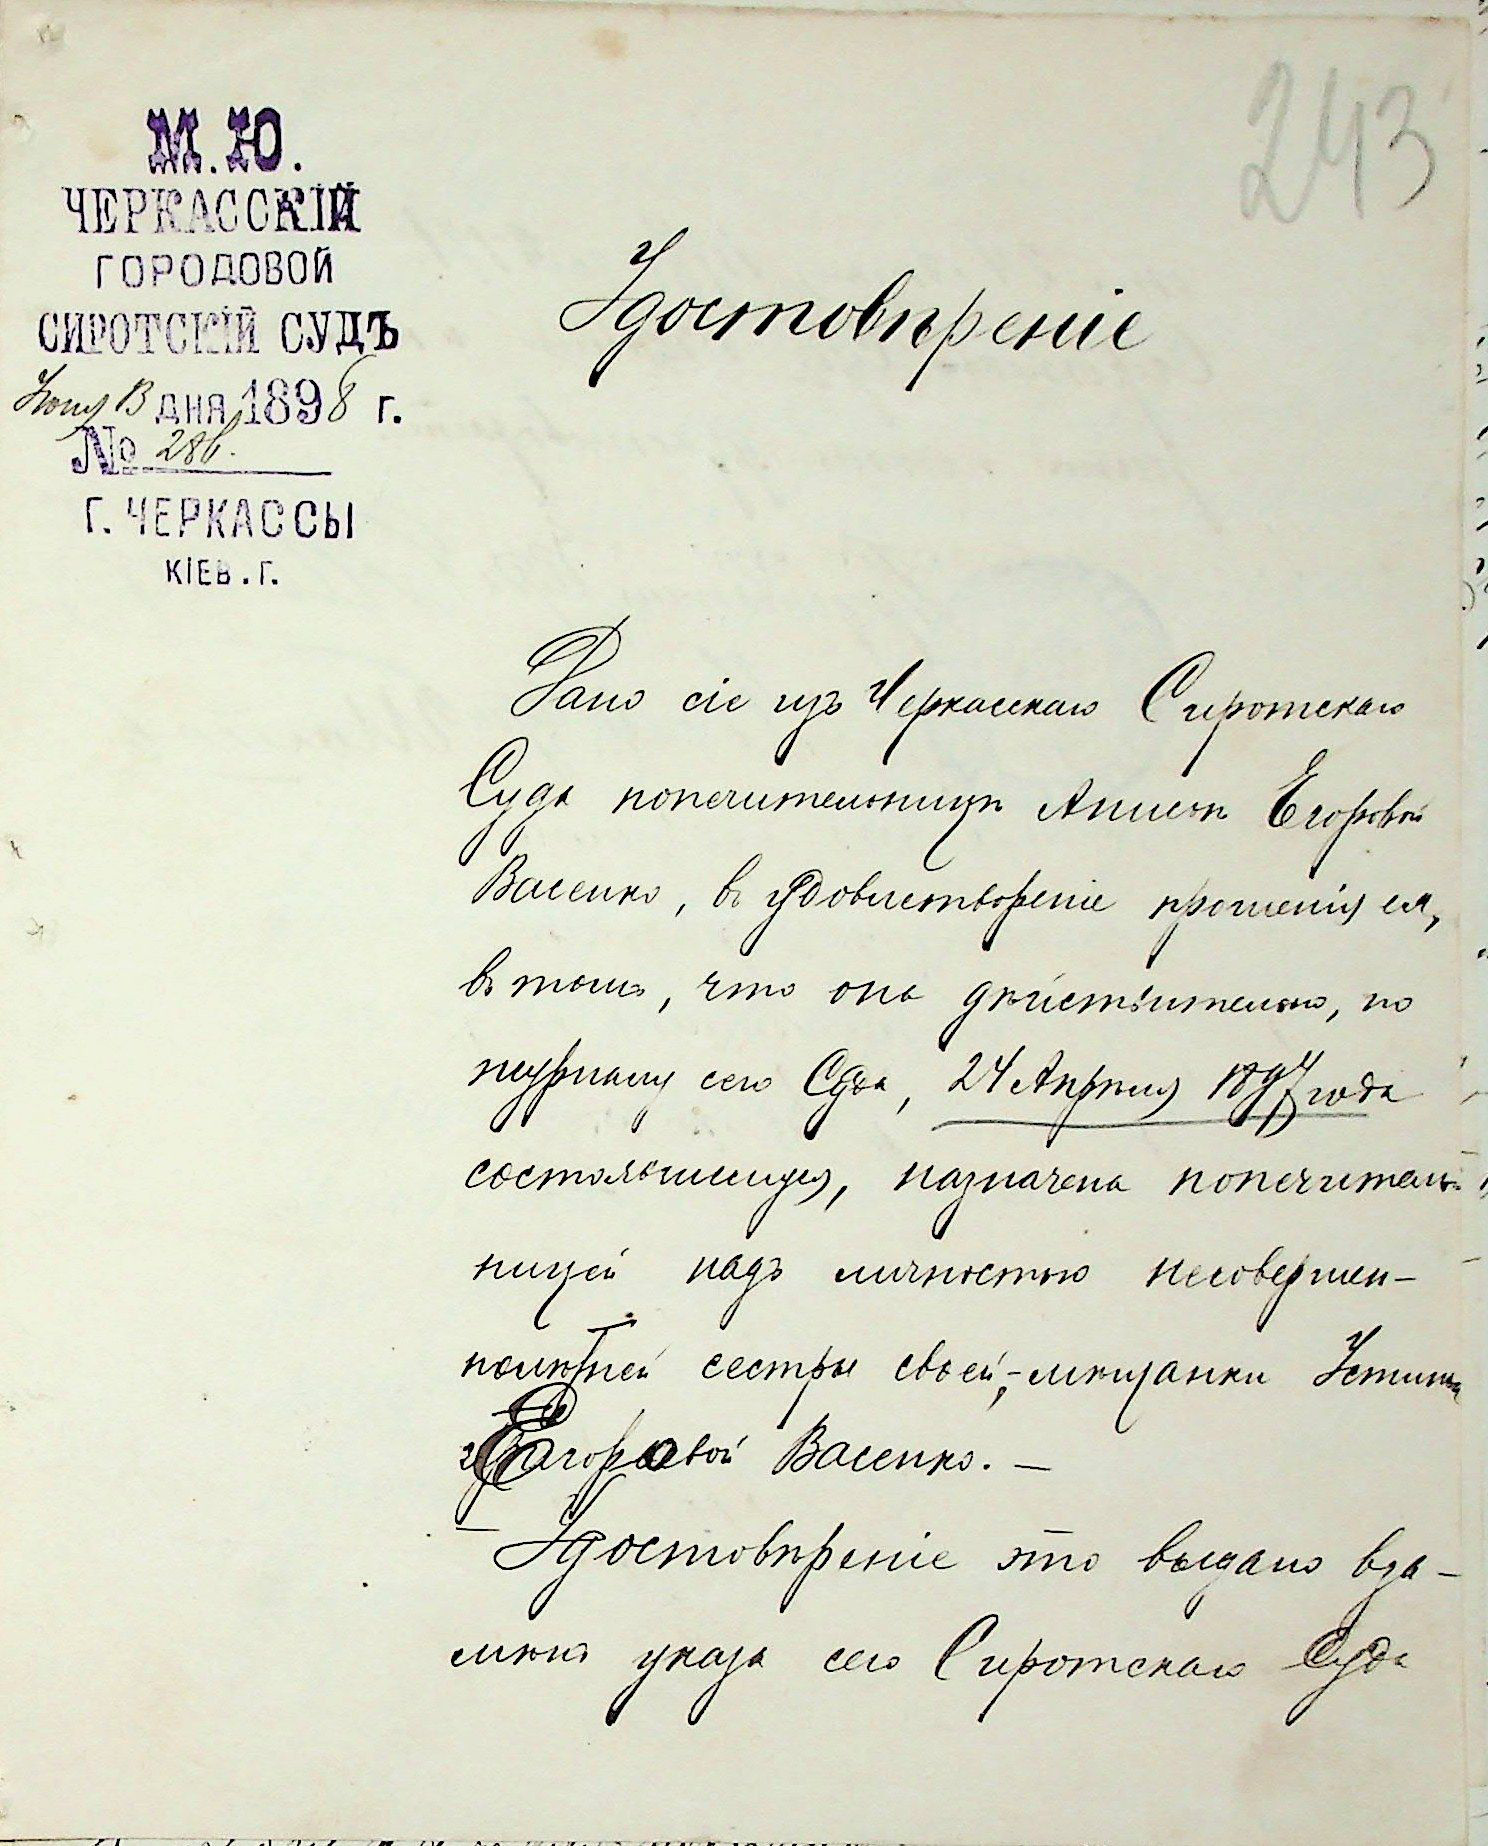 243
М.Ю.
ЧЕРКАССКІЙ
ГОРОДОВОЙ
СИРОТСКІЙ СУДЪ
дня 1898 г.
№ 286.
Г. ЧЕРКАССЫ
КІЕВ. Г.
Удостовѣреніе
Дано сіе изъ Черкасскаго Сиротскаго
Суда попечительницѣ Анисьѣ Егоровой
Васенко, въ удовлетвореніе прошенія ея,
въ томъ, что она дѣйствительно, по
журналу сего Суда, 24 Апрѣля 1897 года
состоявшемуся, назначена попечитель-
ницей надъ личностью несовершен-
нолѣтней сестры своей, - мѣщанки Устиньи
Егоровой Васенко. —
— Удостовѣреніе это выдано вза-
мѣнъ указа сего Сиротскаго Суда